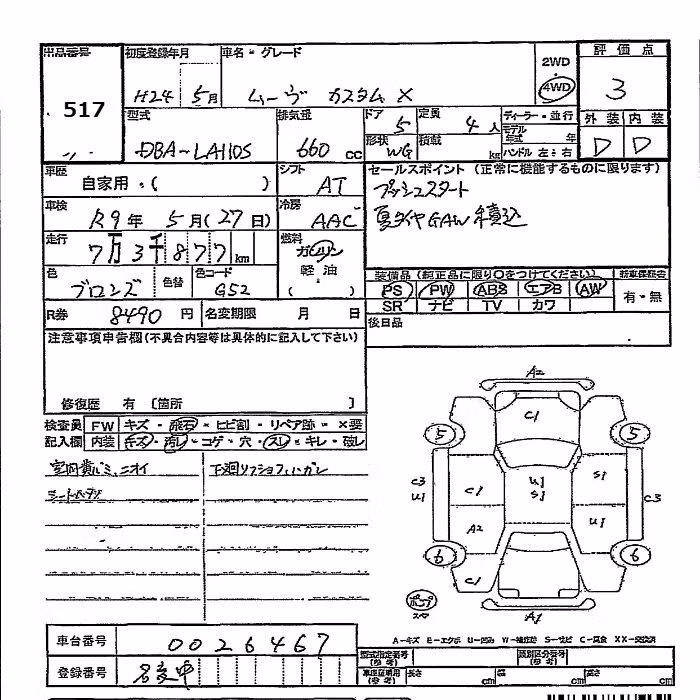 出品番号 初度登録年月 車名・グレード 評価点
517 H24 5月 ムーヴ カスタム X 2WD 4WD 3
型式 排気量 ドア 定員 ディーラー・並行 外装 内装
DBA-LA110S 660 cc 5 4人 モデル年式 年 D D
形状 WG 積載 kg ハンドル 左:右
車歴 シフト セールスポイント (正常に機能するものに限ります)
自家用・( ) AT プッシュスタート
車検 冷房 夏タイヤGAW積込
R9年 5月(27日) AAC
走行 燃料
7万3千877km ガソリン
色 色替 色コード 軽油
ブロンズ G52 ( )
装備品 (純正品に限り○をつけてください) 新車保証書
PS PW ABS エアB AW 有・無
SR ナビ TV カワ
R券 8490円 名変期限 月 日 後日品
注意事項申告欄(不具合内容等は具体的に記入して下さい)
修復歴 有 〔箇所 〕
検査員 FW キズ・飛石・ヒビ割・リペア跡・×要
記入欄 内装 キズ・汚れ・コゲ・穴・スレ・キレ・破レ
ニオイ
A2
C1
5 5
C3 U1 C1 U1 S1 S1 C3
A2 U1
6 6
C1
A1
A-キズ E-エクボ
車台番号 0026467
登録番号 名変中
型式指定番号 (参考) 類別区分番号 (参考)
長さ cm 幅 cm 高さ cm